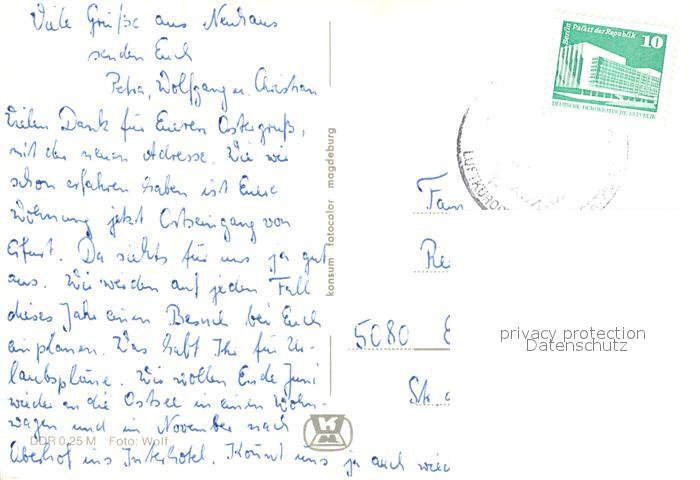 Viele Grüße aus Neuhaus
senden Euch
Petra, Wolfgang u. Christian
Vielen Dank für Eueren Ostergruß,
mit der neuen Adresse. Wie wir
schon erfahren haben ist Eure
Wohnung jetzt Ortseingang von
Erfurt. Da siehts für uns ja gut
aus. Wir werden auf jeden Fall
dieses Jahr einen Besuch bei Euch
einplanen. Was habt Ihr für Ur-
laubspläne. Wir wollen Ende Juni
wieder an die Ostsee in einen Wohn-
wagen und im November nach
Oberhof ins Interhotel. Könnt uns ja auch wied
DDR 0,25 M Foto: Wolf
konsum fotocolor magdeburg
Berlin Palast der Republik
10
DEUTSCHE DEMOKRATISCHE REPUBLIK
LUFTKURO
Fam
Re
5080 E
Str. d
privacy protection
Datenschutz